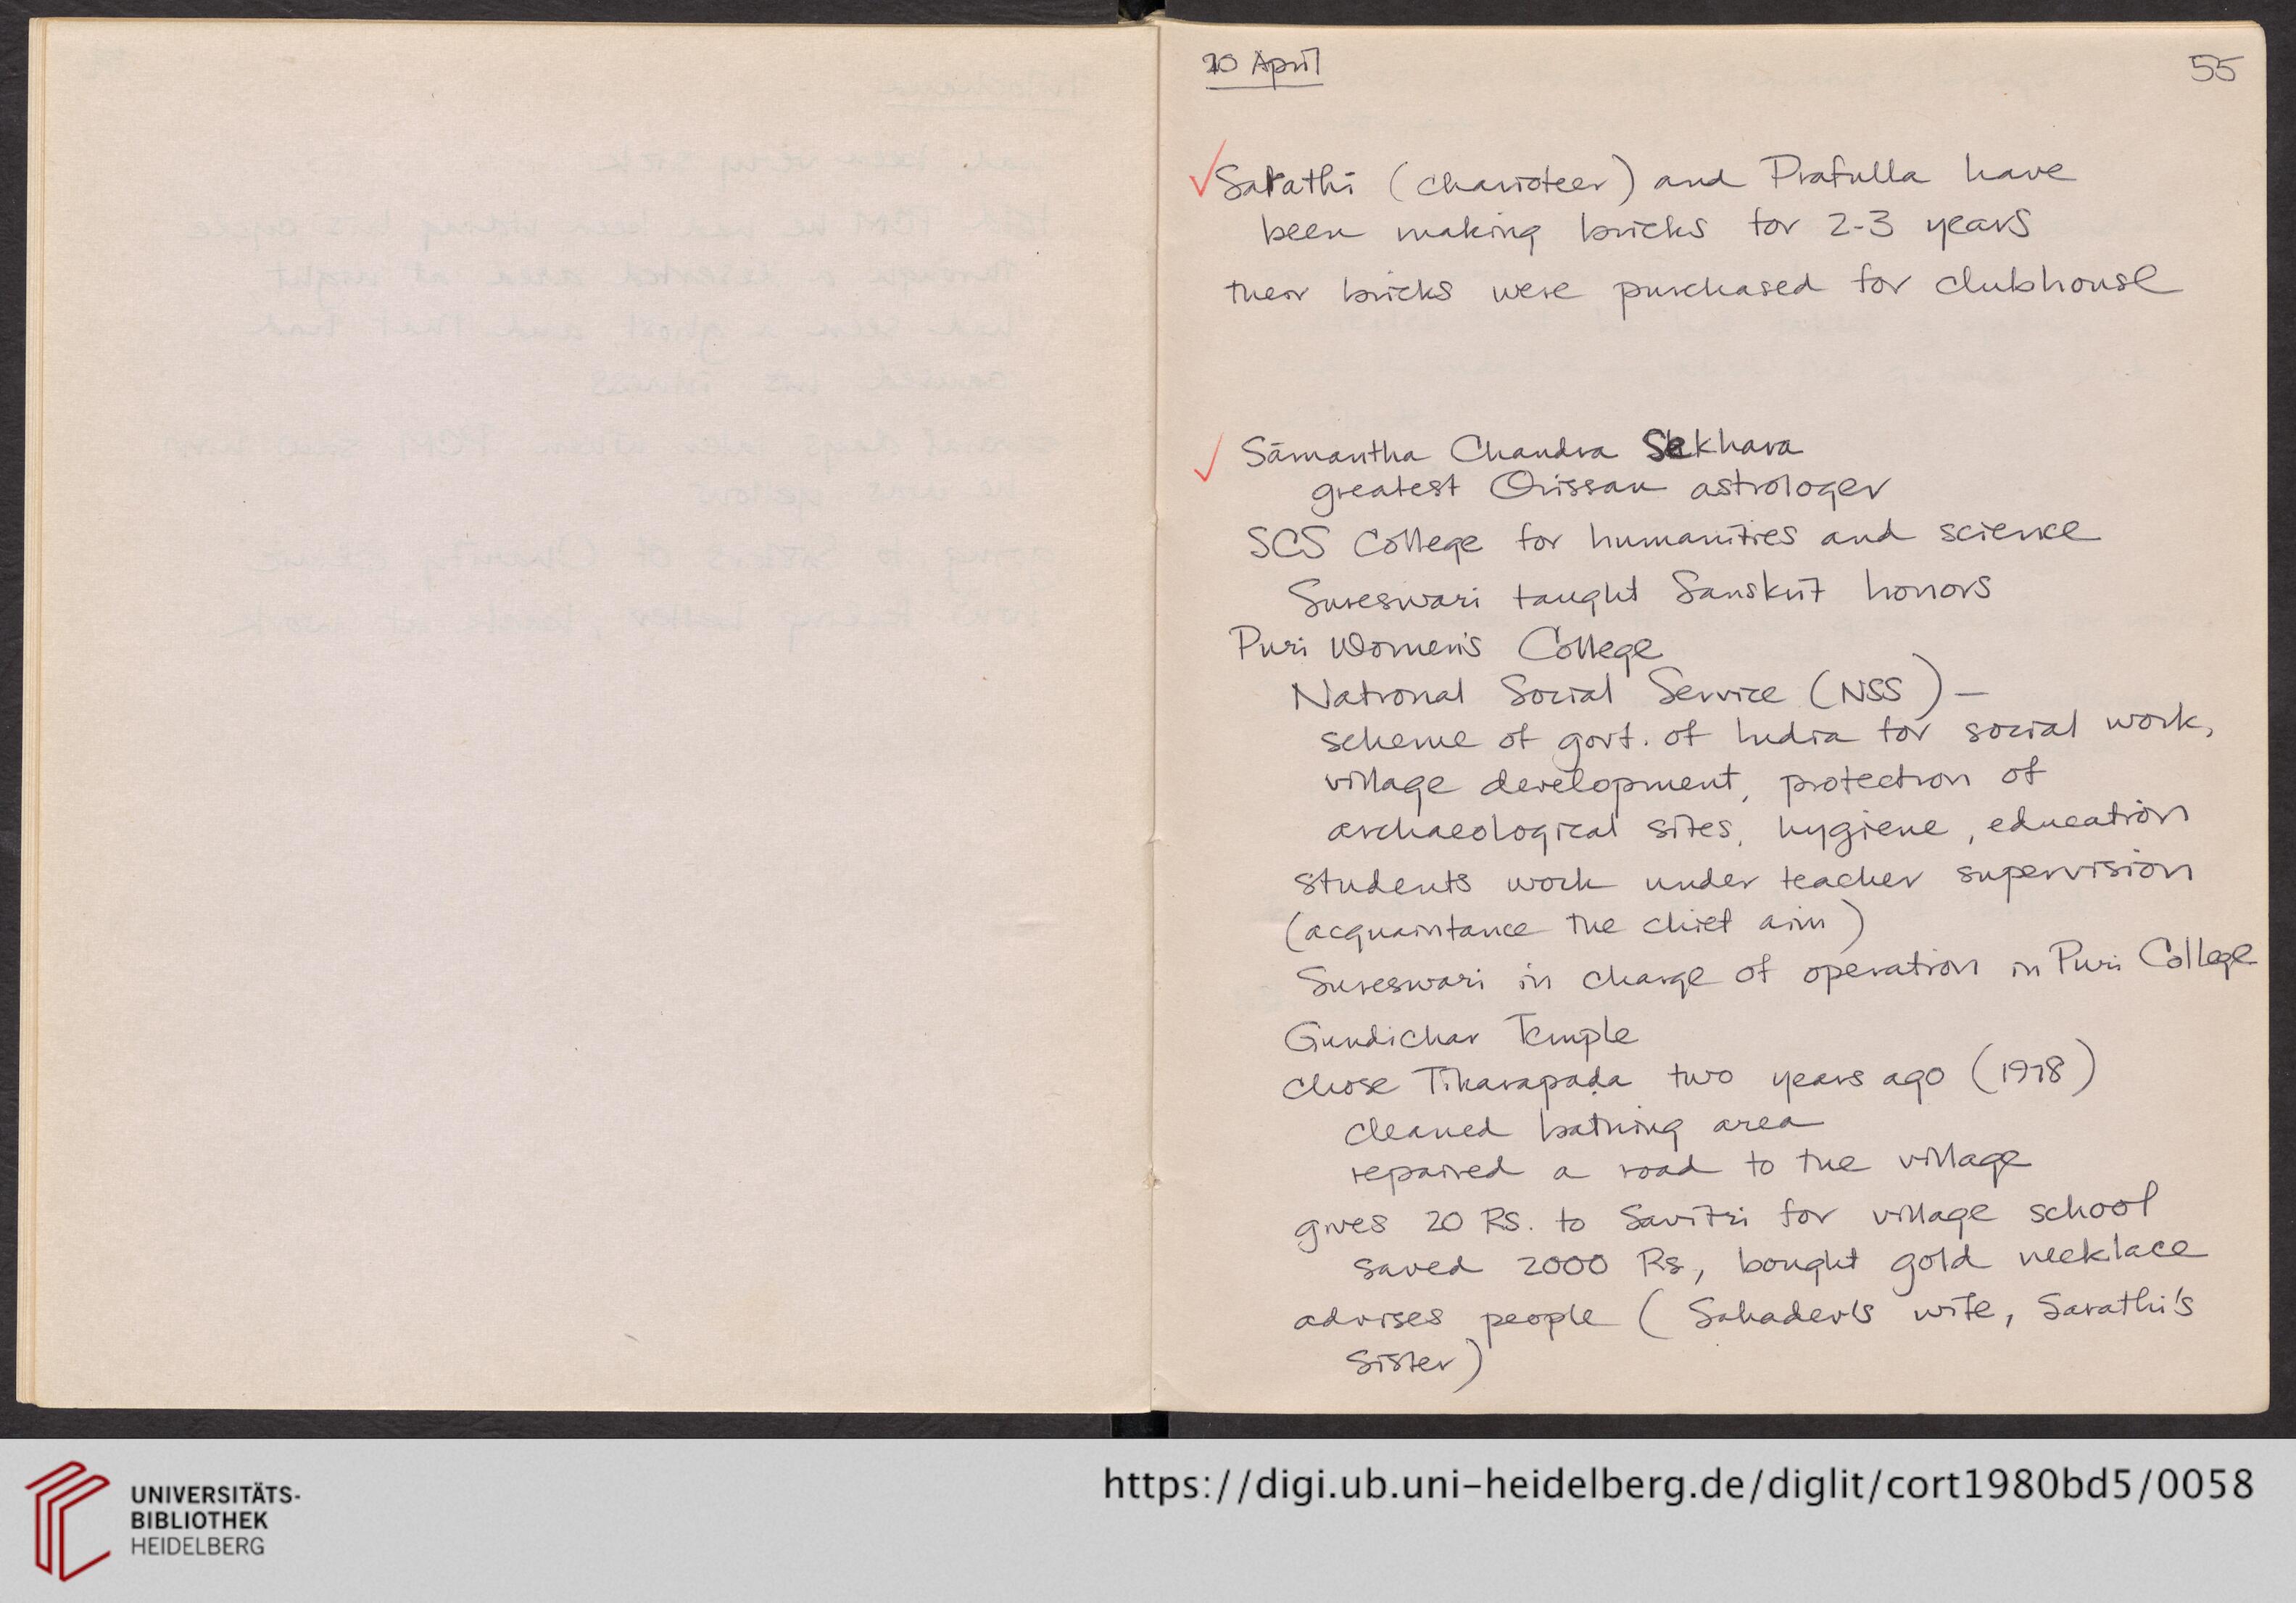 20 April
55
Sarathi (charioteer) and Prafulla have
been making bricks for 2-3 years
their bricks were purchased for clubhouse
Sāmantha Chandra Sekhara
greatest Orissan astrologer
SCS College for humanities and science
Sureswari taught Sanskrit honors
Puri Women's College
National Social Service (NSS) —
scheme of govt. of India for social work,
village development, protection of
archaeological sites, hygiene, education
students work under teacher supervision
(acquaintance the chief aim)
Sureswari in charge of operation in Puri College
Gundichar Temple
chose Tikarapaḍa two years ago (1978)
cleaned bathing area
repaired a road to the village
gives 20 Rs. to Savitri for village school
saved 2000 Rs, bought gold necklace
advises people (Sahadev's wife, Sarathi's
sister)
UNIVERSITÄTS-
BIBLIOTHEK
HEIDELBERG
https://digi.ub.uni-heidelberg.de/diglit/cort1980bd5/0058